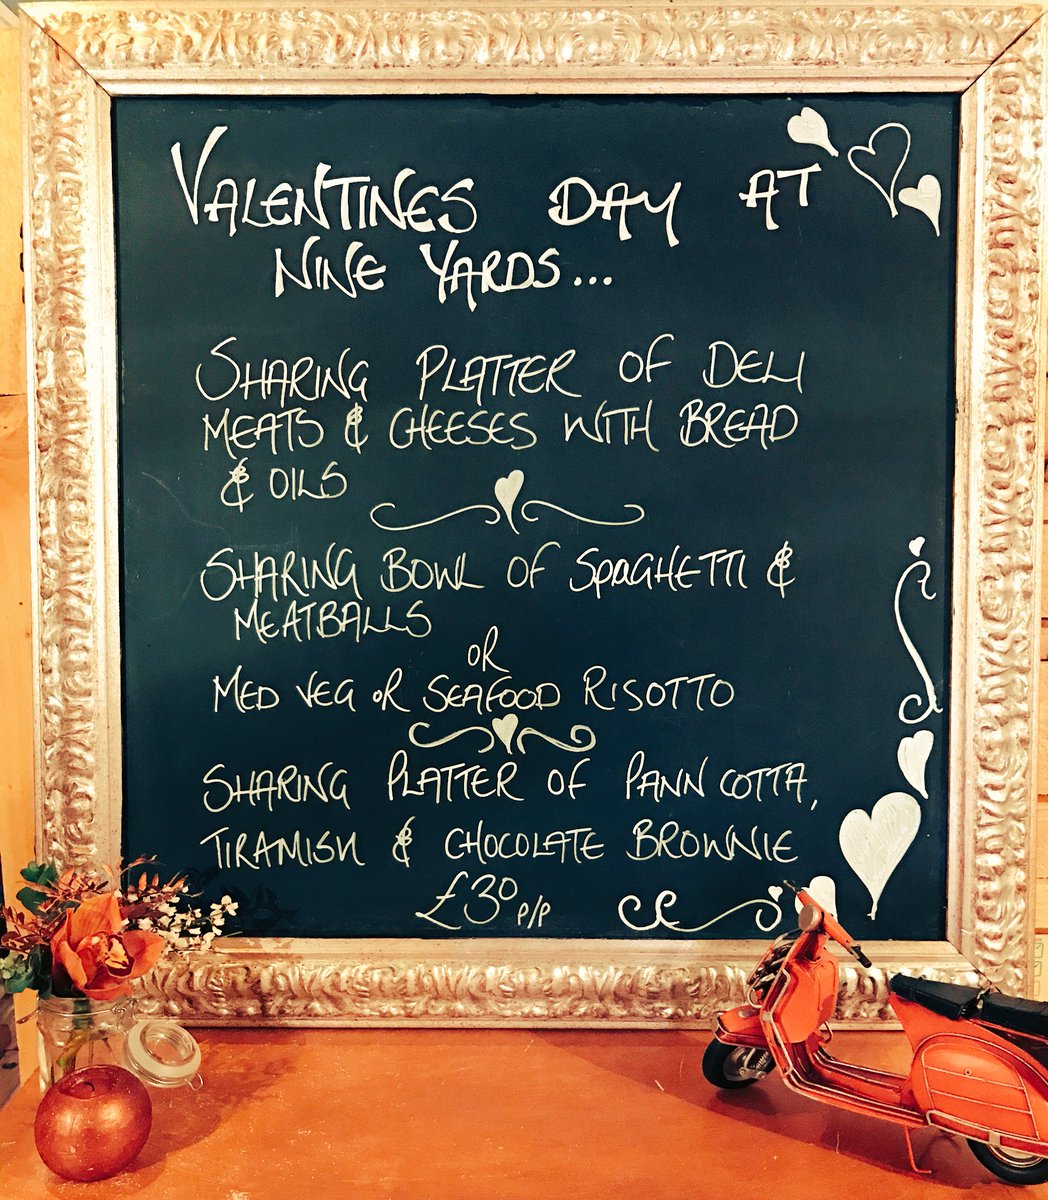 VALENTINES DAY AT
NINE YARDS...
SHARING PLATTER OF DELI
MEATS & CHEESES WITH BREAD
& OILS
SHARING BOWL OF SPAGHETTI &
MEATBALLS
OR
MED VEG OR SEAFOOD RISOTTO
SHARING PLATTER OF PANN COTTA,
TIRAMISU & CHOCOLATE BROWNIE
£30 P/P